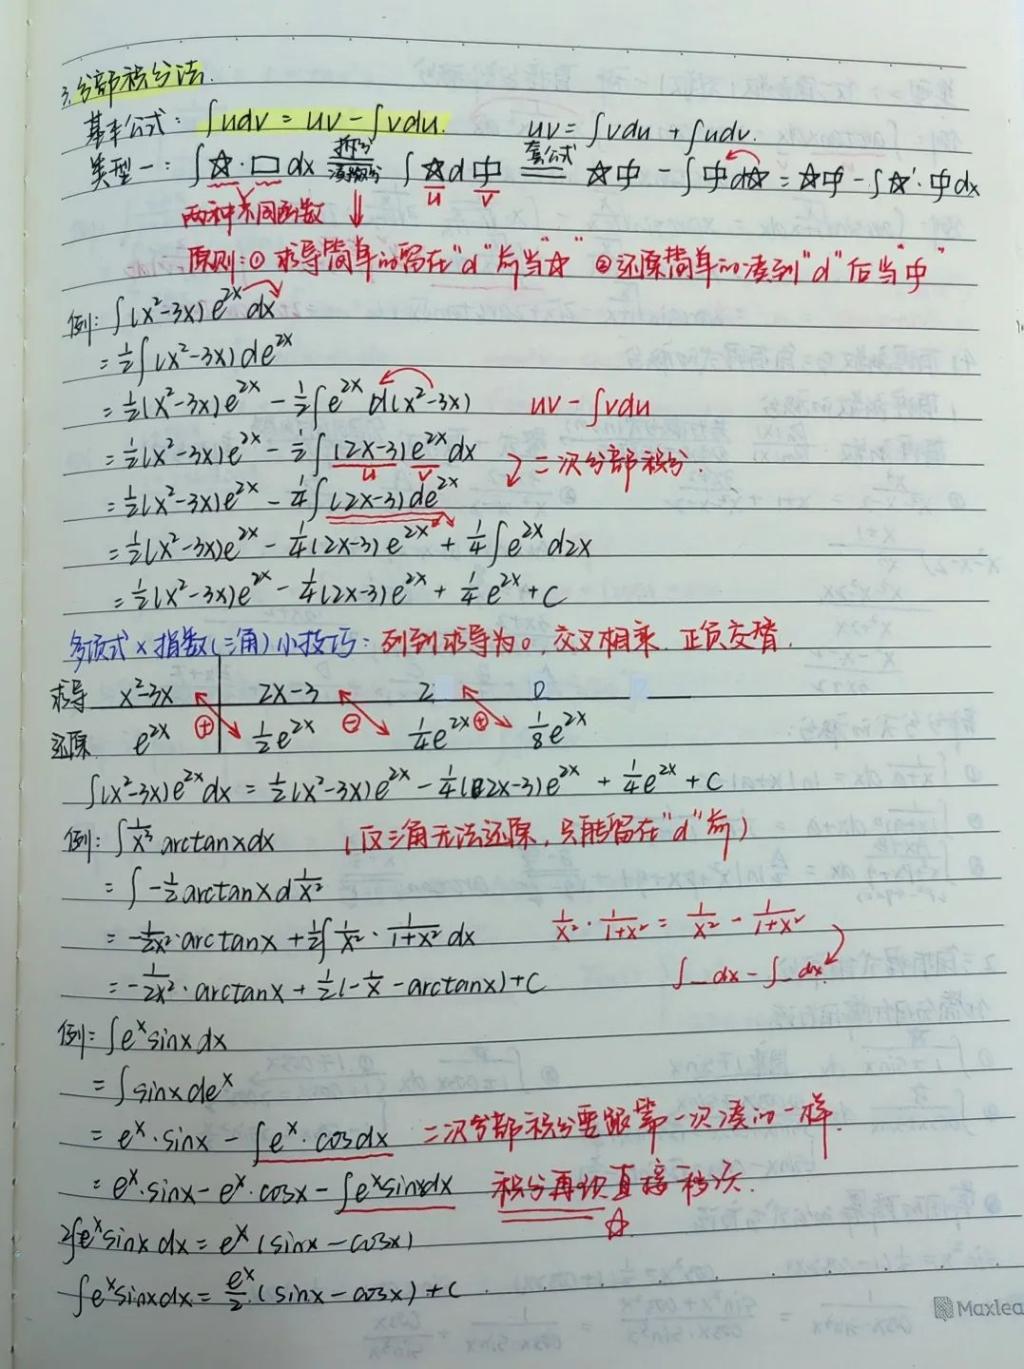 3.分部积分法.
基本公式: ∫udv = uv - ∫vdu. uv = ∫vdu + ∫udv.
类型一: ∫☆·□dx 拆分 凑微分 ∫☆d中 套公式 ☆中 - ∫中d☆ = ☆中 - ∫☆'·中dx
u v
两种不同函数
原则:① 求导简单的留在"d"前当"☆" ②还原简单的凑到"d"后当"中"
例: ∫(x²-3x)e^{2x}dx
= ½∫(x²-3x)de^{2x}
= ½(x²-3x)e^{2x} - ½∫e^{2x}d(x²-3x) uv - ∫vdu
= ½(x²-3x)e^{2x} - ½∫(2x-3)e^{2x}dx 二次分部积分.
u v
= ½(x²-3x)e^{2x} - ¼∫(2x-3)de^{2x}
= ½(x²-3x)e^{2x} - ¼(2x-3)e^{2x} + ¼∫e^{2x}d2x
= ½(x²-3x)e^{2x} - ¼(2x-3)e^{2x} + ¼e^{2x} + C
多项式×指数(三角)小技巧: 列到求导为0, 交叉相乘. 正负交替.
求导 x²-3x 2x-3 2 0
⊕ ⊖ ⊕
还原 e^{2x} ½e^{2x} ¼e^{2x} ⅛e^{2x}
∫(x²-3x)e^{2x}dx = ½(x²-3x)e^{2x} - ¼(2x-3)e^{2x} + ¼e^{2x} + C
例: ∫1/x³ arctanxdx (反三角无法还原, 只能留在"d"前)
= ∫-½arctanxd1/x²
= -1/2x²·arctanx + ½∫1/x²·1/(1+x²)dx 1/x²·1/(1+x²) = 1/x² - 1/(1+x²)
= -1/2x²·arctanx + ½(-1/x - arctanx) + C ∫_dx - ∫_dx
例: ∫e^x sinxdx
= ∫sinxde^x
= e^x·sinx - ∫e^x·cosdx 二次分部积分要跟第一次凑的一样.
= e^x·sinx - e^x·cosx - ∫e^x sinxdx 积分再现直接移项.
☆
2∫e^x sinxdx = e^x(sinx - cosx)
∫e^x sinxdx = e^x/2·(sinx - cosx) + C
Maxlea